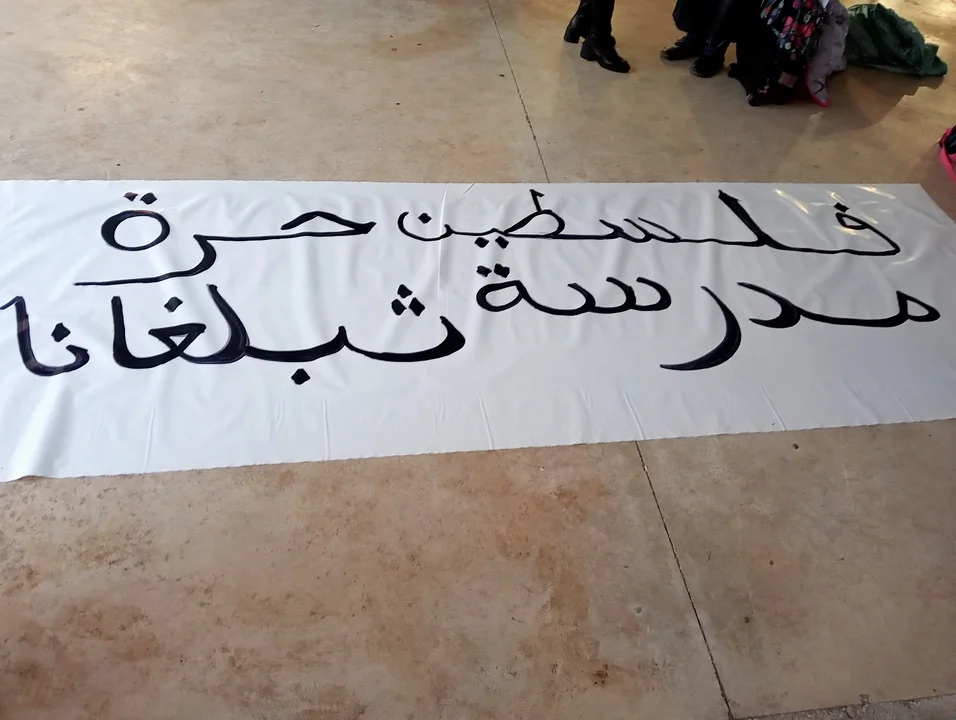 فلسطين حرة
مدرسة شبلغانا